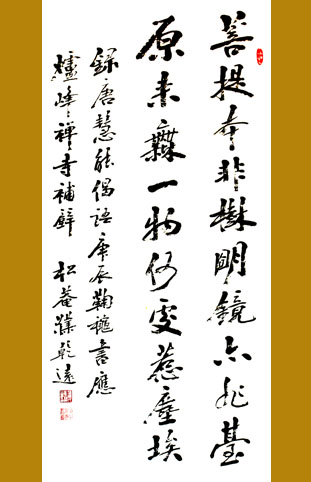 菩提本非樹明鏡亦非臺
原來無一物何處惹塵埃
錄唐慧能偈語庚辰鞠秋書應
爐峰禪寺補壁 松菴龔乾遠